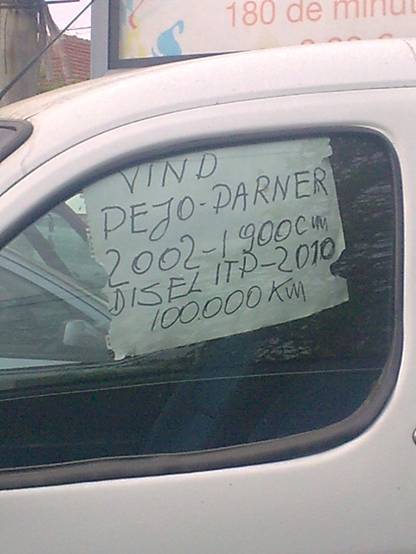 180 de minut
VIND
PEJO-PARNER
2002-1900cm
DISEL ITP-2010
100.000 Km